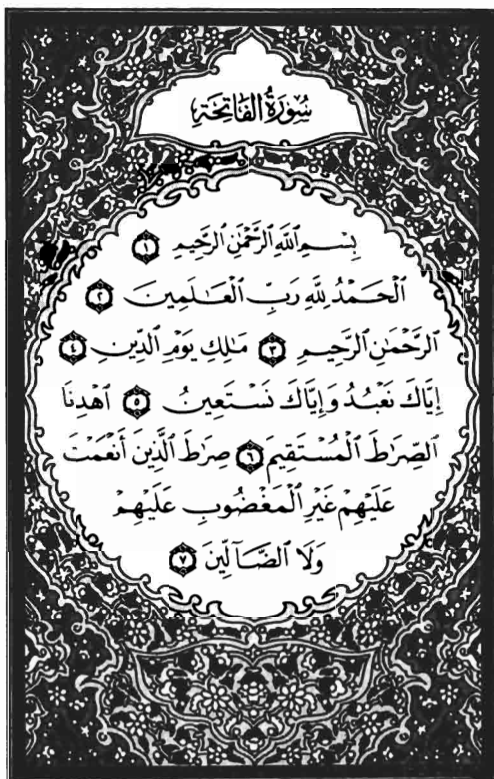 سُورَةُ الْفَاتِحَةِ
بِسْمِ اللَّهِ الرَّحْمَٰنِ الرَّحِيمِ ١
الْحَمْدُ لِلَّهِ رَبِّ الْعَالَمِينَ ٢
الرَّحْمَٰنِ الرَّحِيمِ ٣ مَالِكِ يَوْمِ الدِّينِ ٤
إِيَّاكَ نَعْبُدُ وَإِيَّاكَ نَسْتَعِينُ ٥ اهْدِنَا
الصِّرَاطَ الْمُسْتَقِيمَ ٦ صِرَاطَ الَّذِينَ أَنْعَمْتَ
عَلَيْهِمْ غَيْرِ الْمَغْضُوبِ عَلَيْهِمْ
وَلَا الضَّآلِّينَ ٧